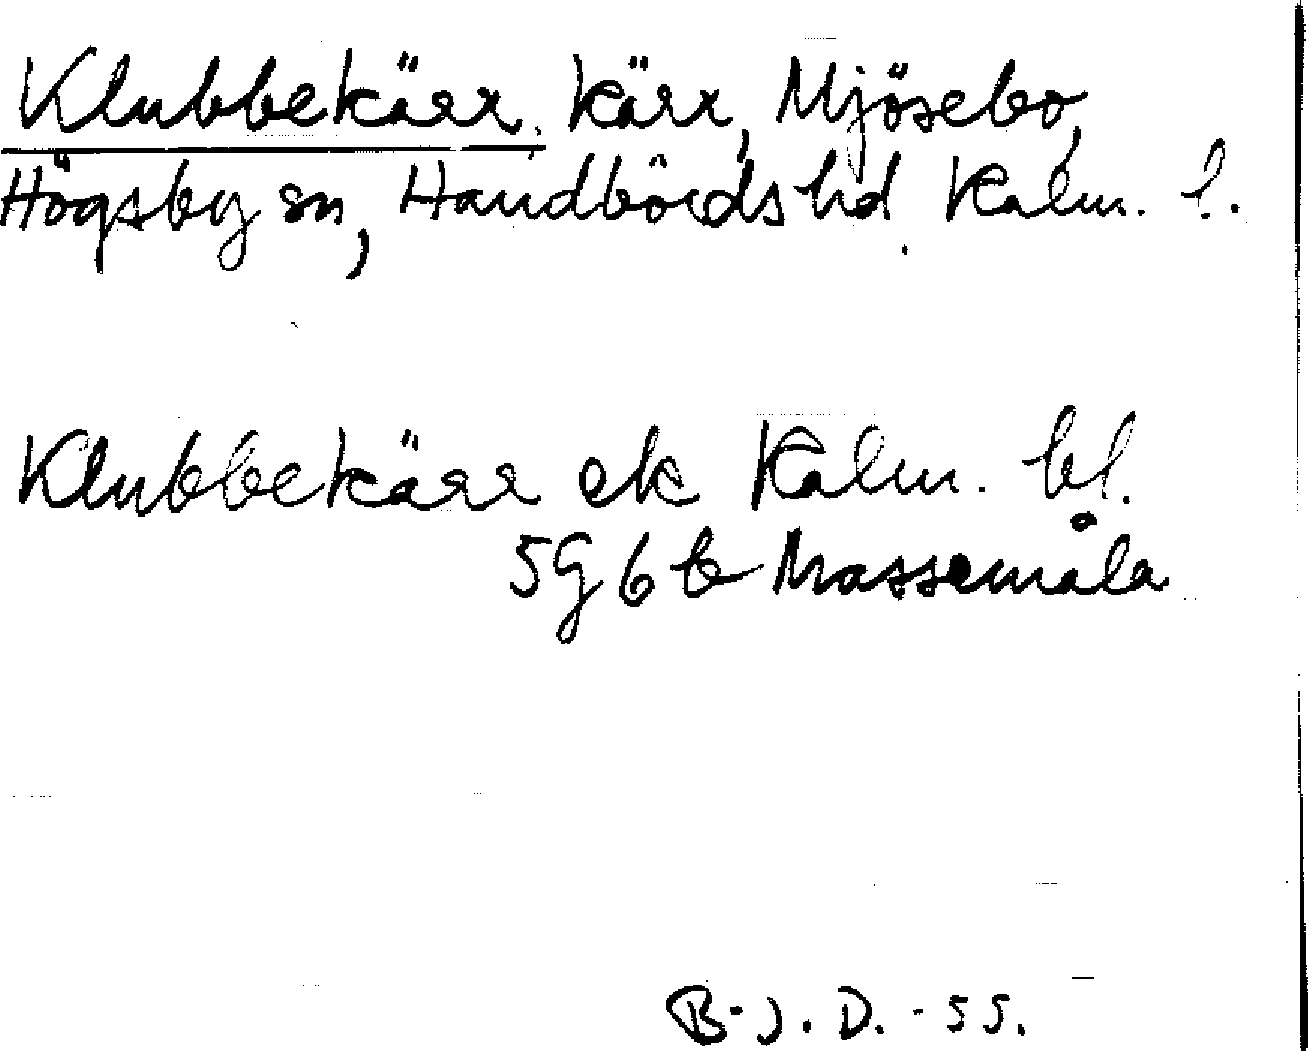 Klubbekärr, kärr, Mjösebo,
Högsby sn, Handbörds hd. Kalm. l.
Klubbekärr ek Kalm. bl.
5G6b Massemåla
B-J.D.-55.